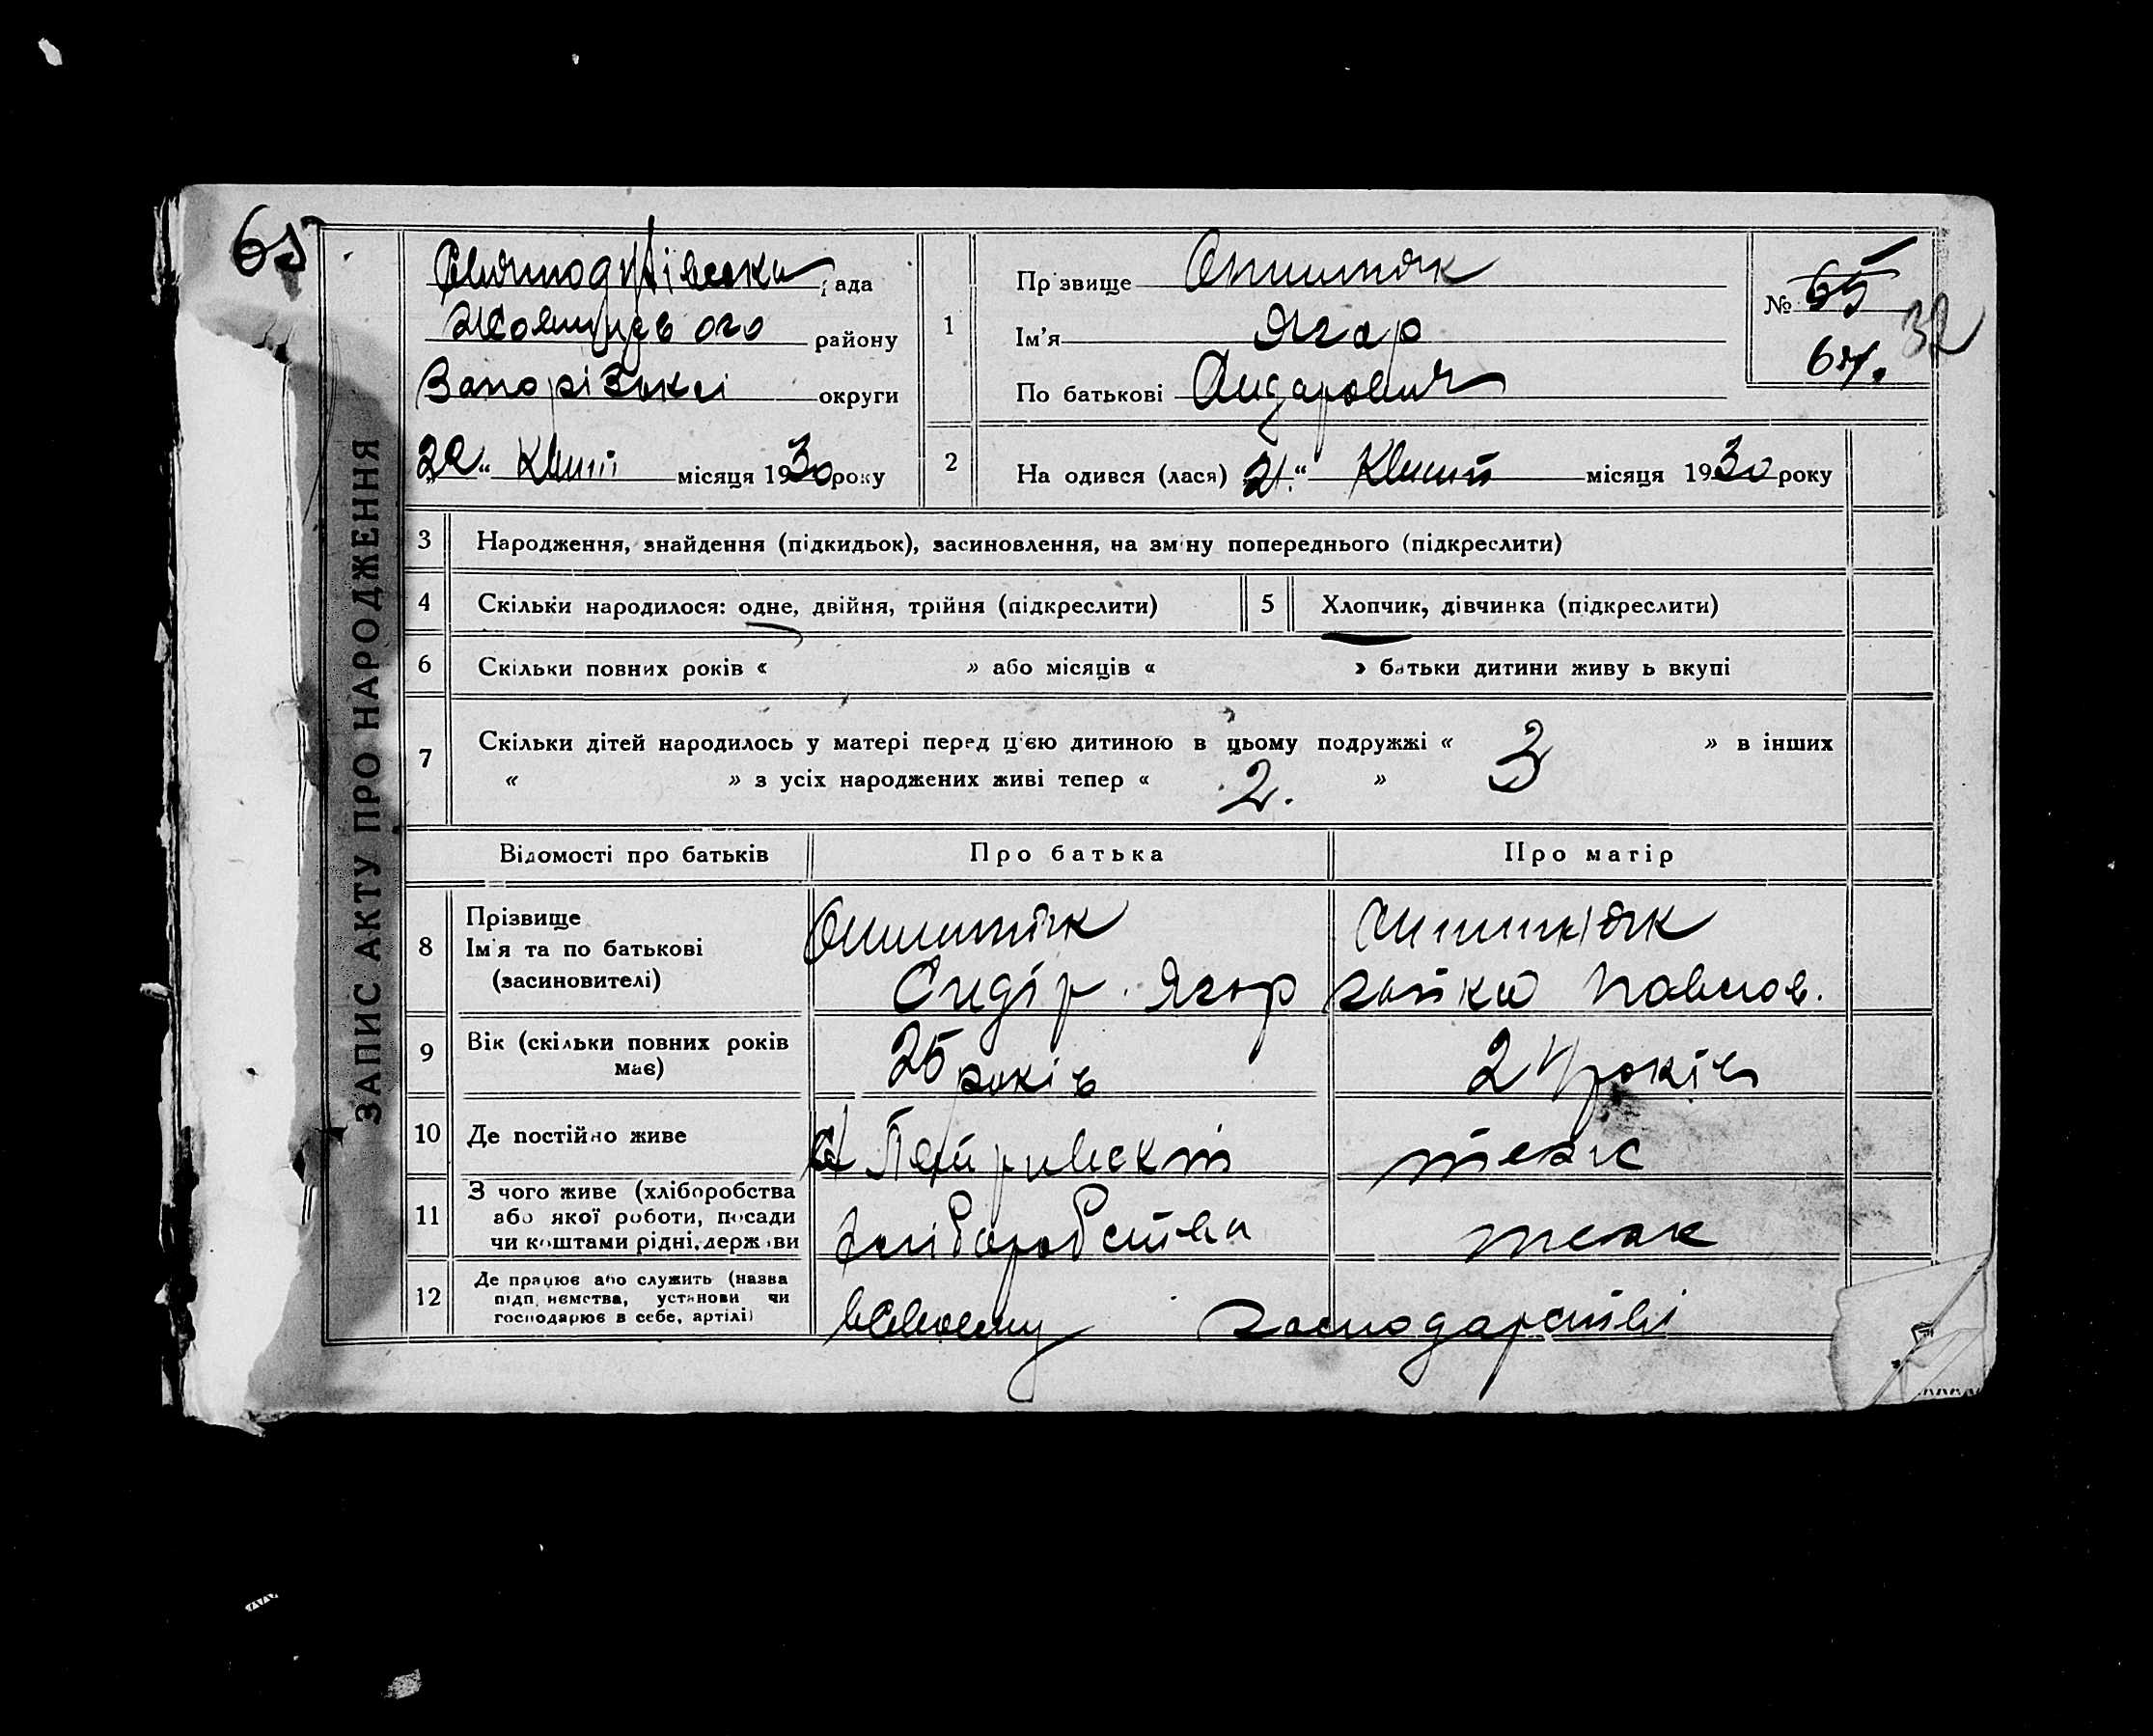 65
рада
району
Запорізької округи
22 " Квіт місяця 1930 року
ЗАПИС АКТУ ПРО НАРОДЖЕННЯ
1 Прізвище
Ім'я Ягор
По батькові
№ 65
32
2 Народився (лася) 21 " Квіт місяця 1930 року
3 Народження, знайдення (підкидьок), засиновлення, на зміну попереднього (підкреслити)
4 Скільки народилося: одне, двійня, трійня (підкреслити)
5 Хлопчик, дівчинка (підкреслити)
6 Скільки повних років « » або місяців « » батьки дитини живуть вкупі
7 Скільки дітей народилось у матері перед цією дитиною в цьому подружжі « 3 » в інших
« » з усіх народжених живі тепер « 2. »
Відомості про батьків Про батька Про матір
8 Прізвище
Ім'я та по батькові
(засиновителі)
Сидір Ягор Павлов.
9 Вік (скільки повних років
має)
25 років 24 років
10 Де постійно живе теж
11 З чого живе (хліборобства
або якої роботи, посади
чи коштами рідні, держави
хліборобства теж
12 Де працює або служить (назва
підприємства, установи чи
господарює в себе, артілі)
в своему господарстві